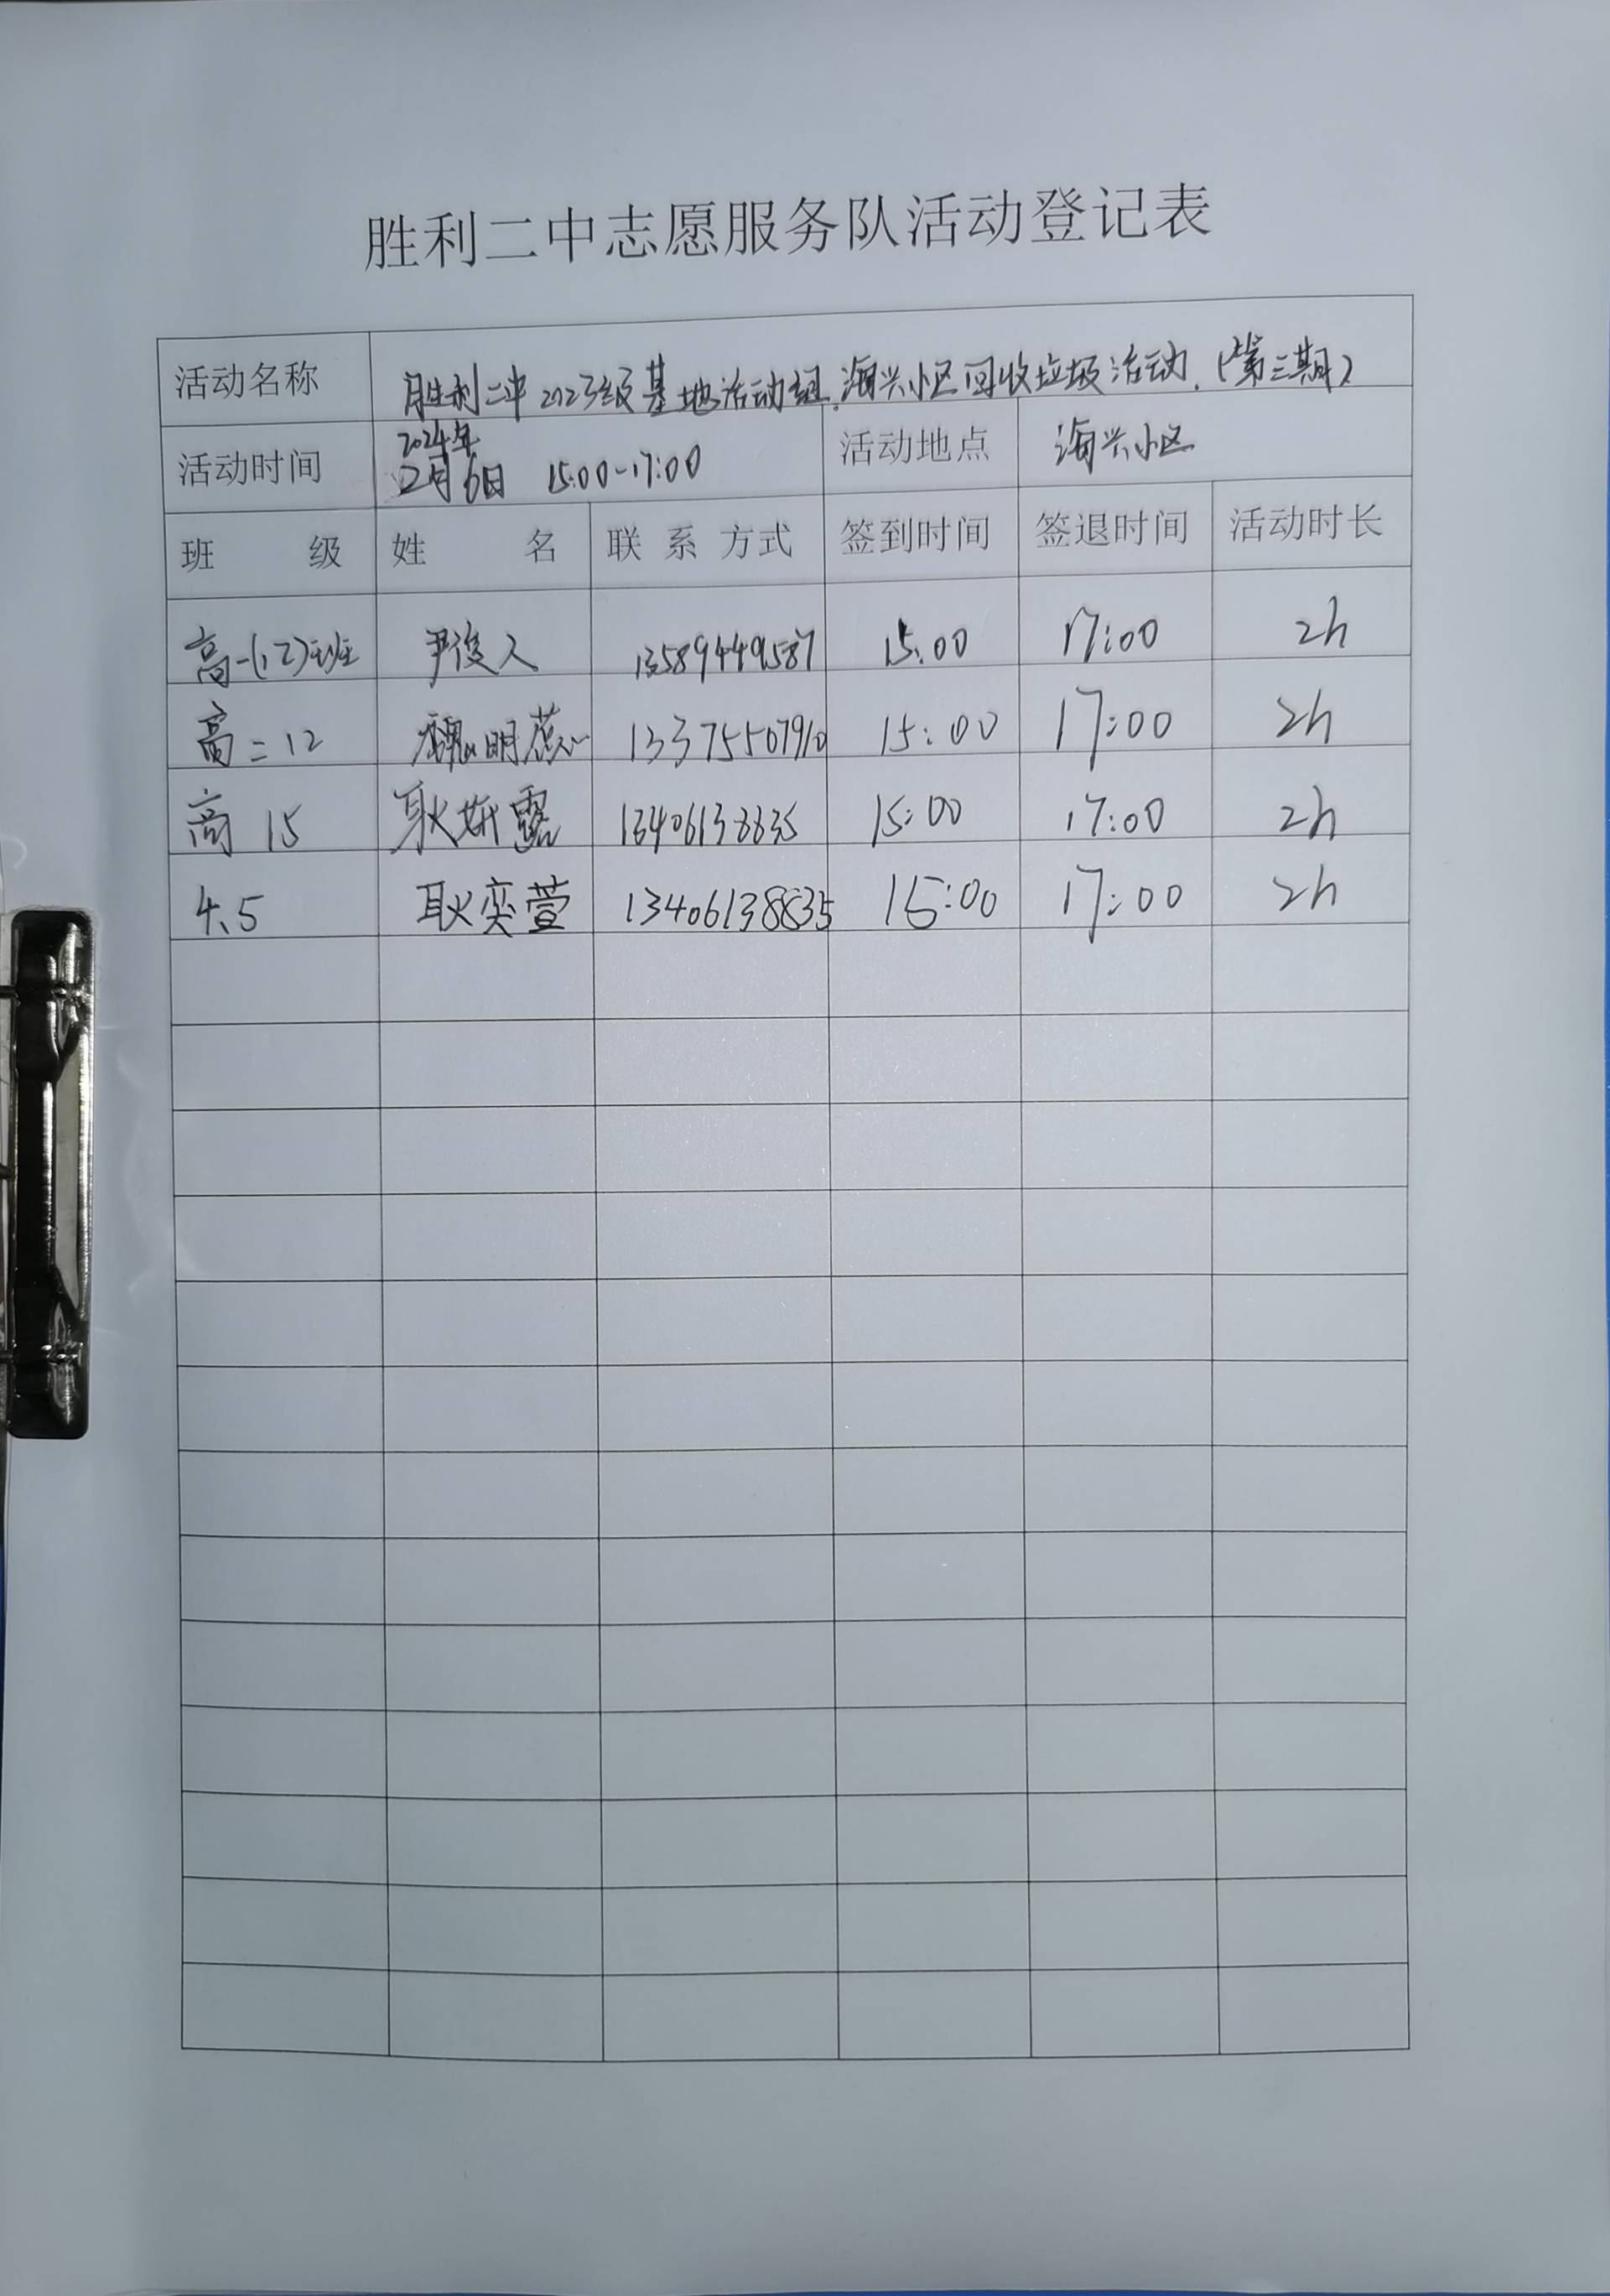 胜利二中志愿服务队活动登记表
活动名称 胜利二中2023级基地活动组,海兴小区回收垃圾活动.(第三期)
活动时间 2024年
2月6日 15:00-17:00 活动地点 海兴小区
班 级 姓 名 联 系 方式 签到时间 签退时间 活动时长
高一(12)班 尹俊人 13589449587 15:00 17:00 2h
高二12 魏明 13375507910 15:00 17:00 2h
高 15 耿妍露 13406138835 15:00 17:00 2h
4.5 耿奕萱 13406138835 15:00 17:00 2h